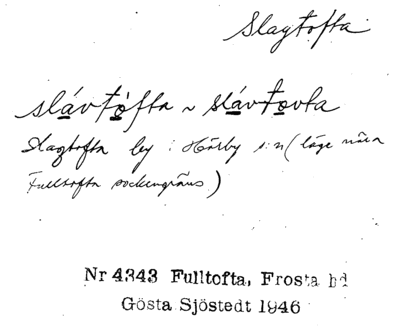 Slagtofta
slávtófta ~ slávtovta
Slagtofta by i Hörby s:n (läge nära
Fulltofta sockengräns)
Nr 4343 Fulltofta, Frosta hd
Gösta Sjöstedt 1946